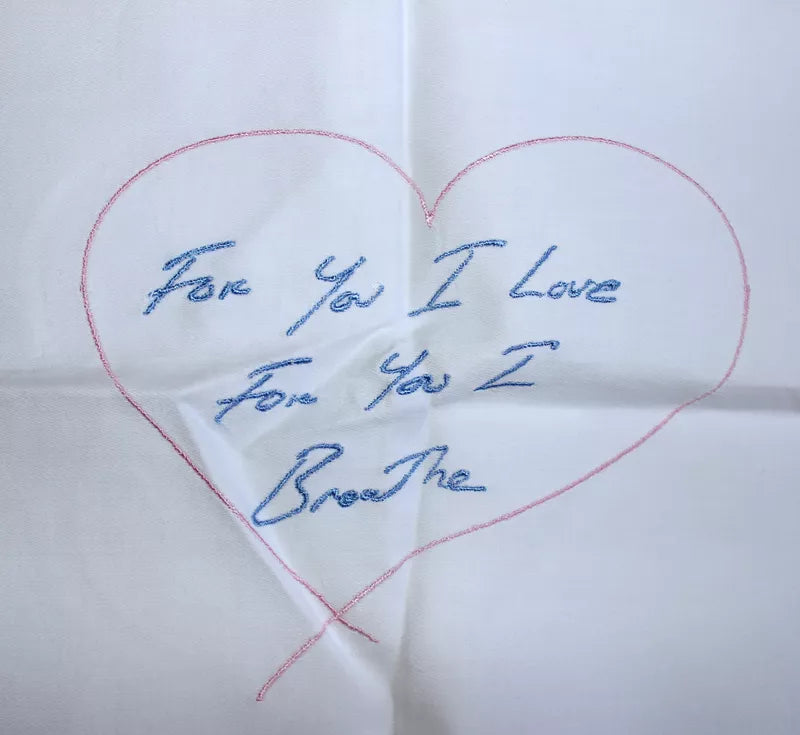 For You I Love
For You I
Breathe